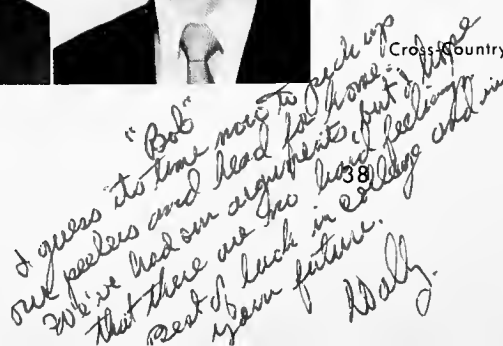 Cross-Country
"Bob"
I guess its time now to pick up
our peelers and head for home.
We've had our arguments, but I hope
that there are no hard feelings.
Best of luck in college and in
your future.
Wally.
38